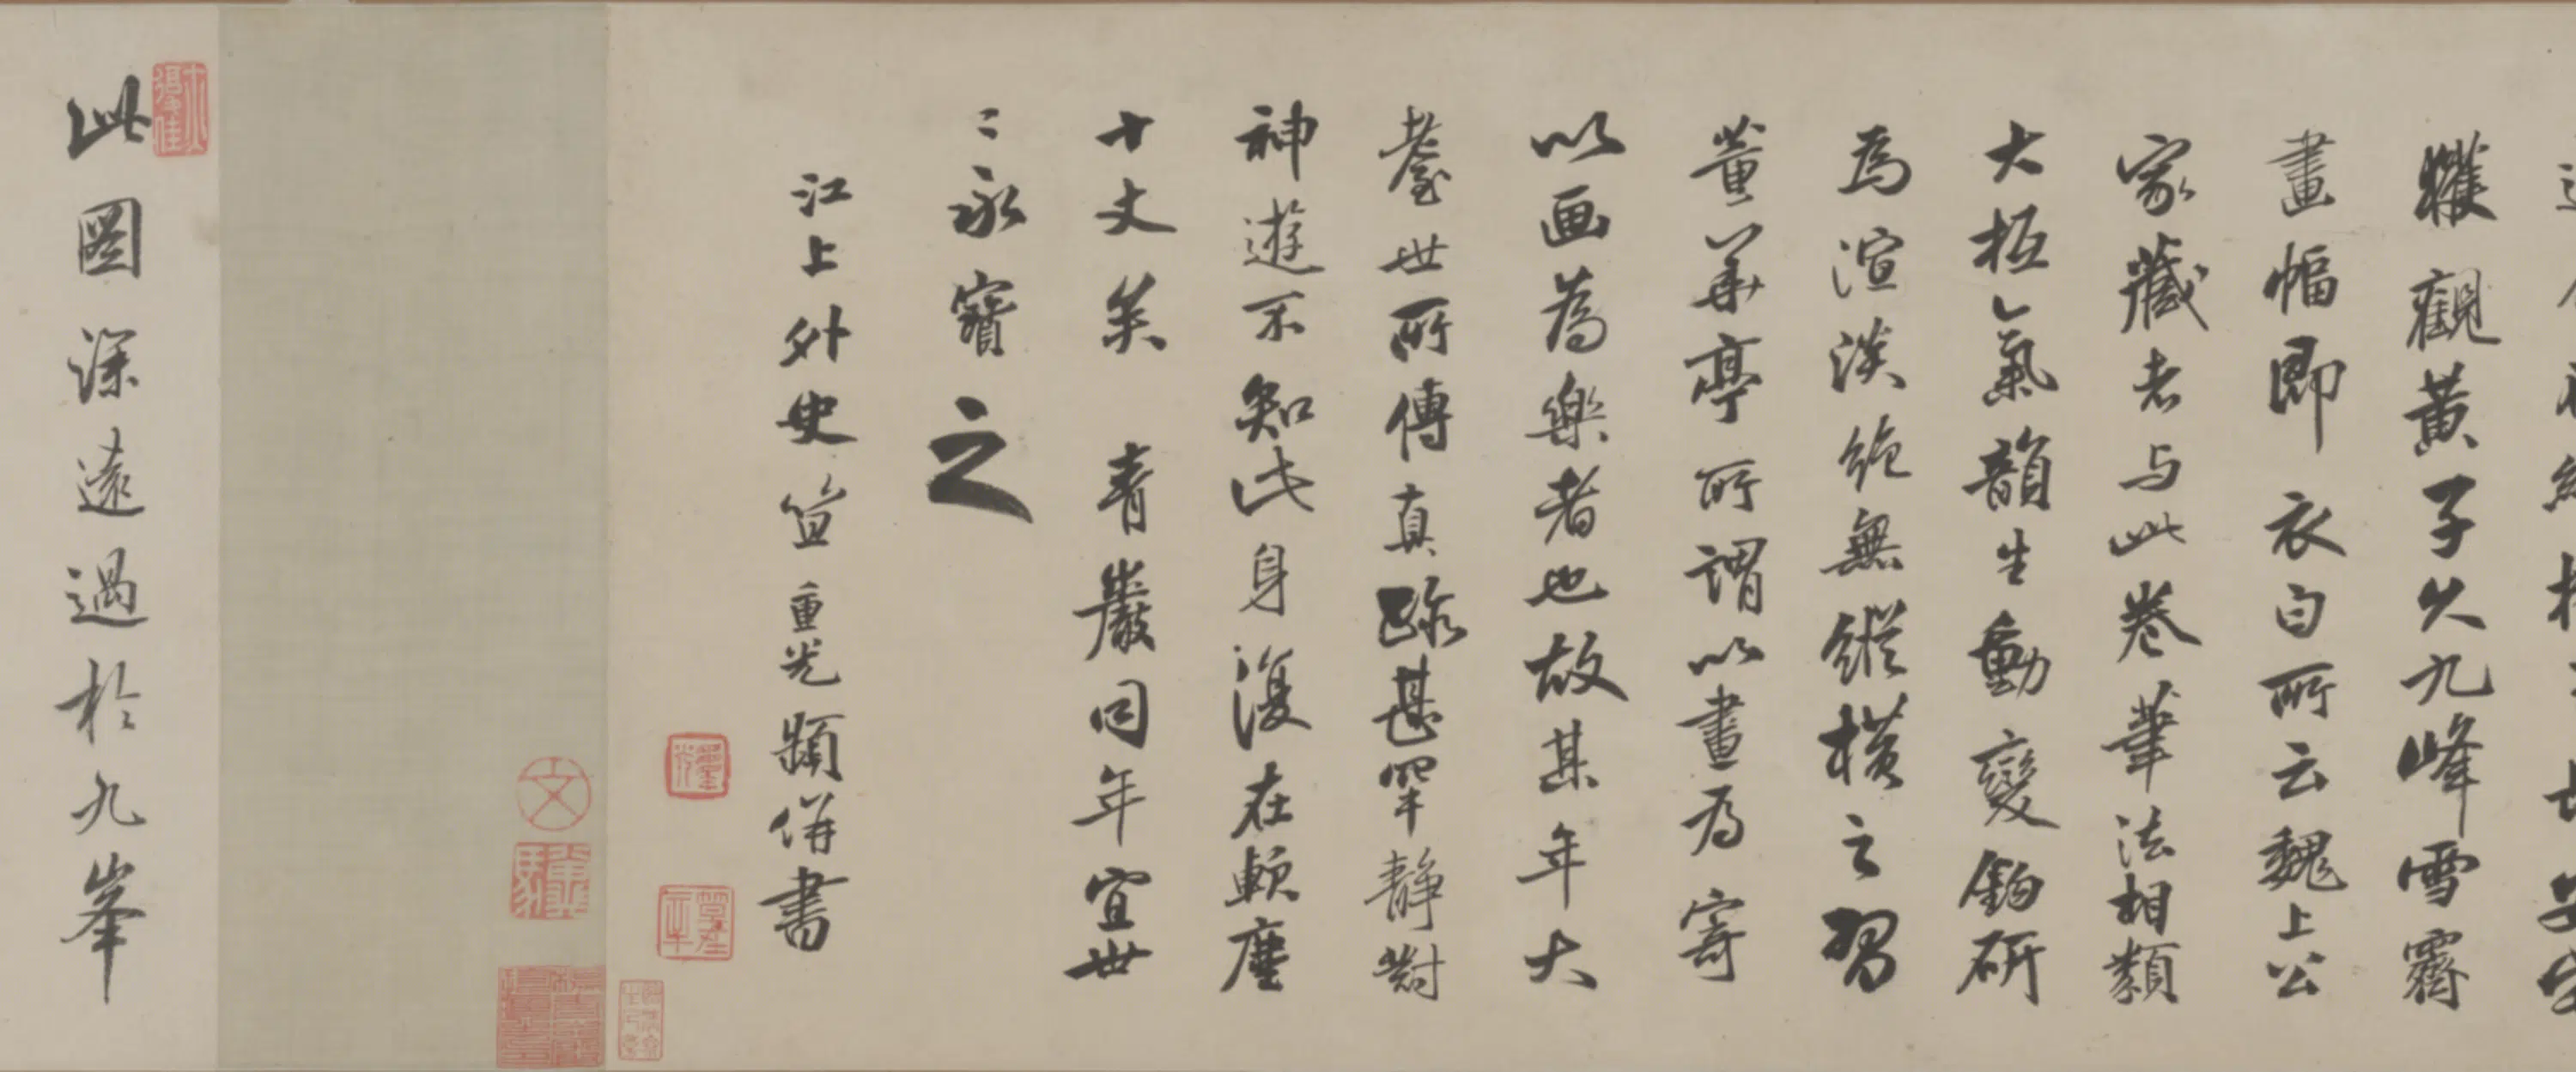 獲觀黃子久九峰雪霽
畫幅即衣白所云魏上公
家藏者与此卷筆法相類
大柢氣韻生動變鉤研
為渲淡絶無縱橫之習
董華亭所謂以畫為寄
以画為樂者也故其年大
耋世所傳真跡甚罕靜對
神遊不知此身復在軟塵
十丈矣 青巖同年宜世
〻永寶之
江上外史笪重光題併書
此圖深遠過於九峯